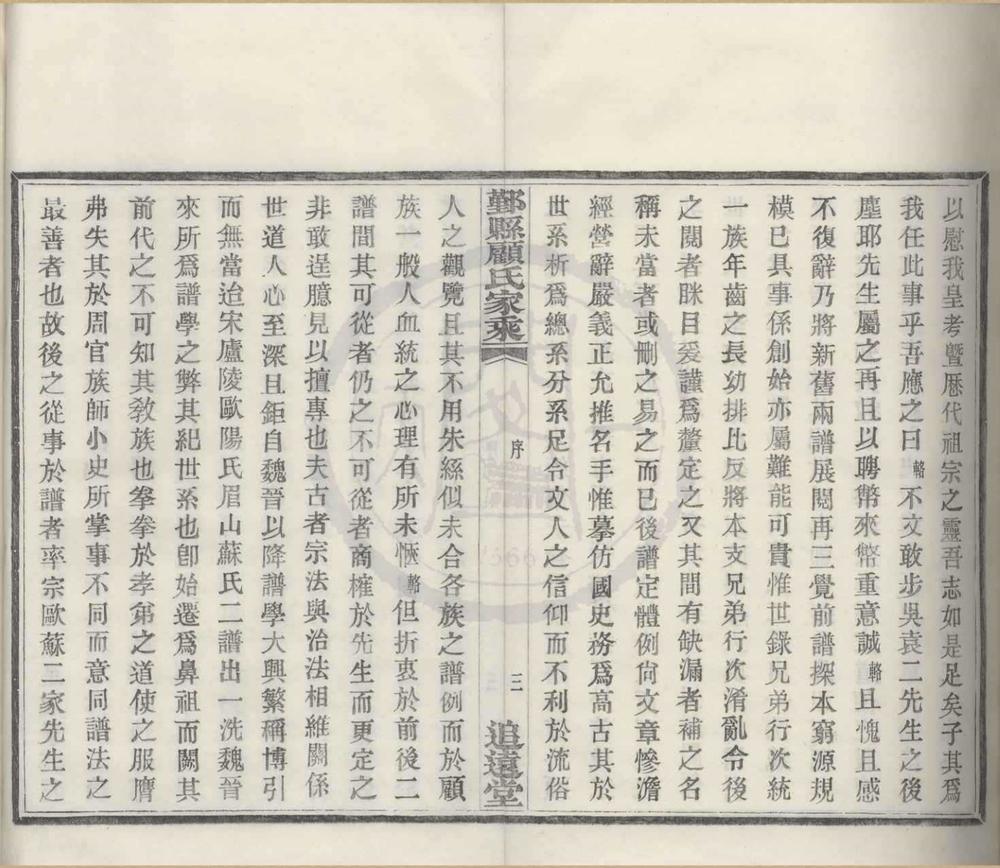 以慰我皇考暨歷代祖宗之靈吾志如是足矣子其爲
我任此事乎吾應之曰輅不文敢步吳袁二先生之後
塵耶先生屬之再且以聘幣來幣重意誠輅且愧且感
不復辭乃將新舊兩譜展閱再三覺前譜探本窮源規
模已具事係創始亦屬難能可貴惟世錄兄弟行次統
一族年齒之長幼排比反將本支兄弟行次淆亂令後
之閱者眯目爰謹爲釐定之又其間有缺漏者補之名
稱未當者或刪之易之而已後譜定體例尙文章慘澹
經營辭嚴義正允推名手惟摹仿國史務爲高古其於
世系析爲總系分系足令文人之信仰而不利於流俗
鄞縣顧氏家乘
序
三
追遠堂
人之觀覽且其不用朱絲似未合各族之譜例而於顧
族一般人血統之心理有所未愜輅但折衷於前後二
譜間其可從者仍之不可從者商榷於先生而更定之
非敢逞臆見以擅專也夫古者宗法與治法相維關係
世道人心至深且鉅自魏晉以降譜學大興繁稱博引
而無當迨宋廬陵歐陽氏眉山蘇氏二譜出一洗魏晉
來所爲譜學之弊其紀世系也卽始遷爲鼻祖而闕其
前代之不可知其敎族也拳拳於孝弟之道使之服膺
弗失其於周官族師小史所掌事不同而意同譜法之
最善者也故後之從事於譜者率宗歐蘇二家先生之